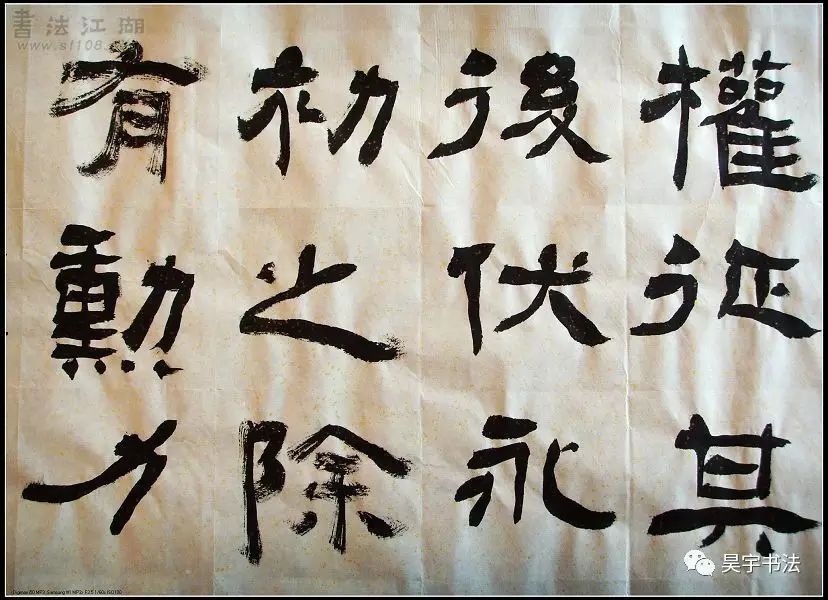 書法江湖
權征其
後伏永
初之除
有勳力
昊宇书法